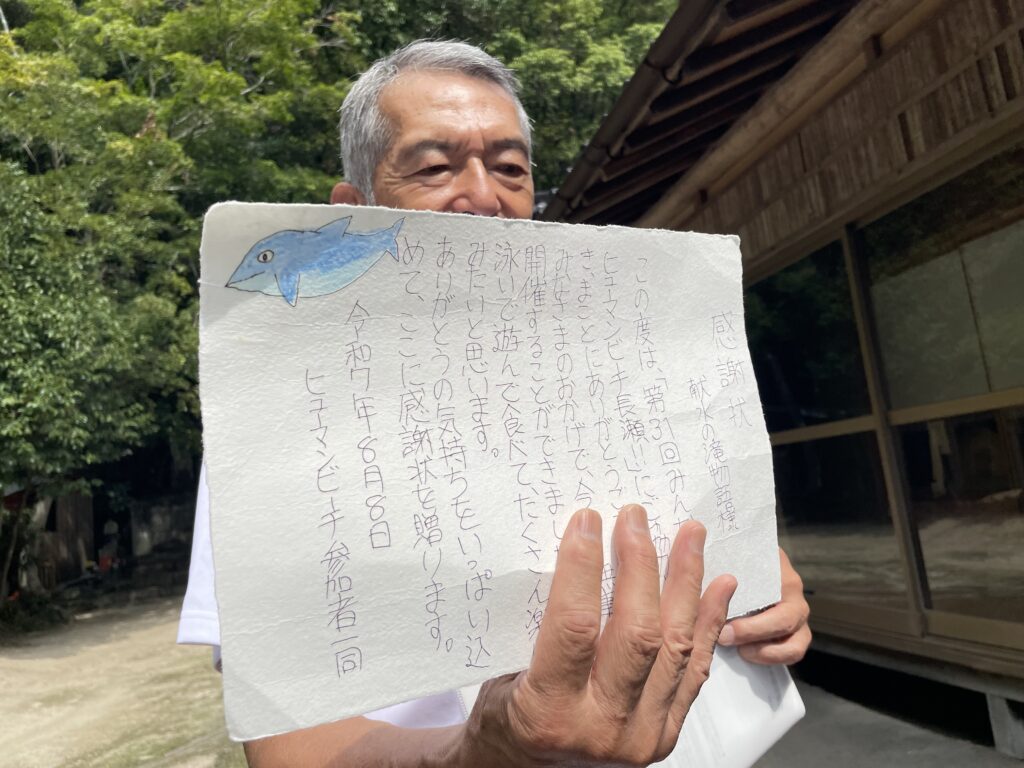 感謝状
献水の滝物語様
この度は、「第31回みんな
ヒューマンビーチ長瀬!!」にご
き、まことにありがとうご
みなさまのおかげで、今
開催することができました
泳いで遊んで食べて、たくさん楽
みたいと思います。
ありがとうの気持ちをいっぱい込
めて、ここに感謝状を贈ります。
令和7年8月8日
ヒューマンビーチ参加者一同